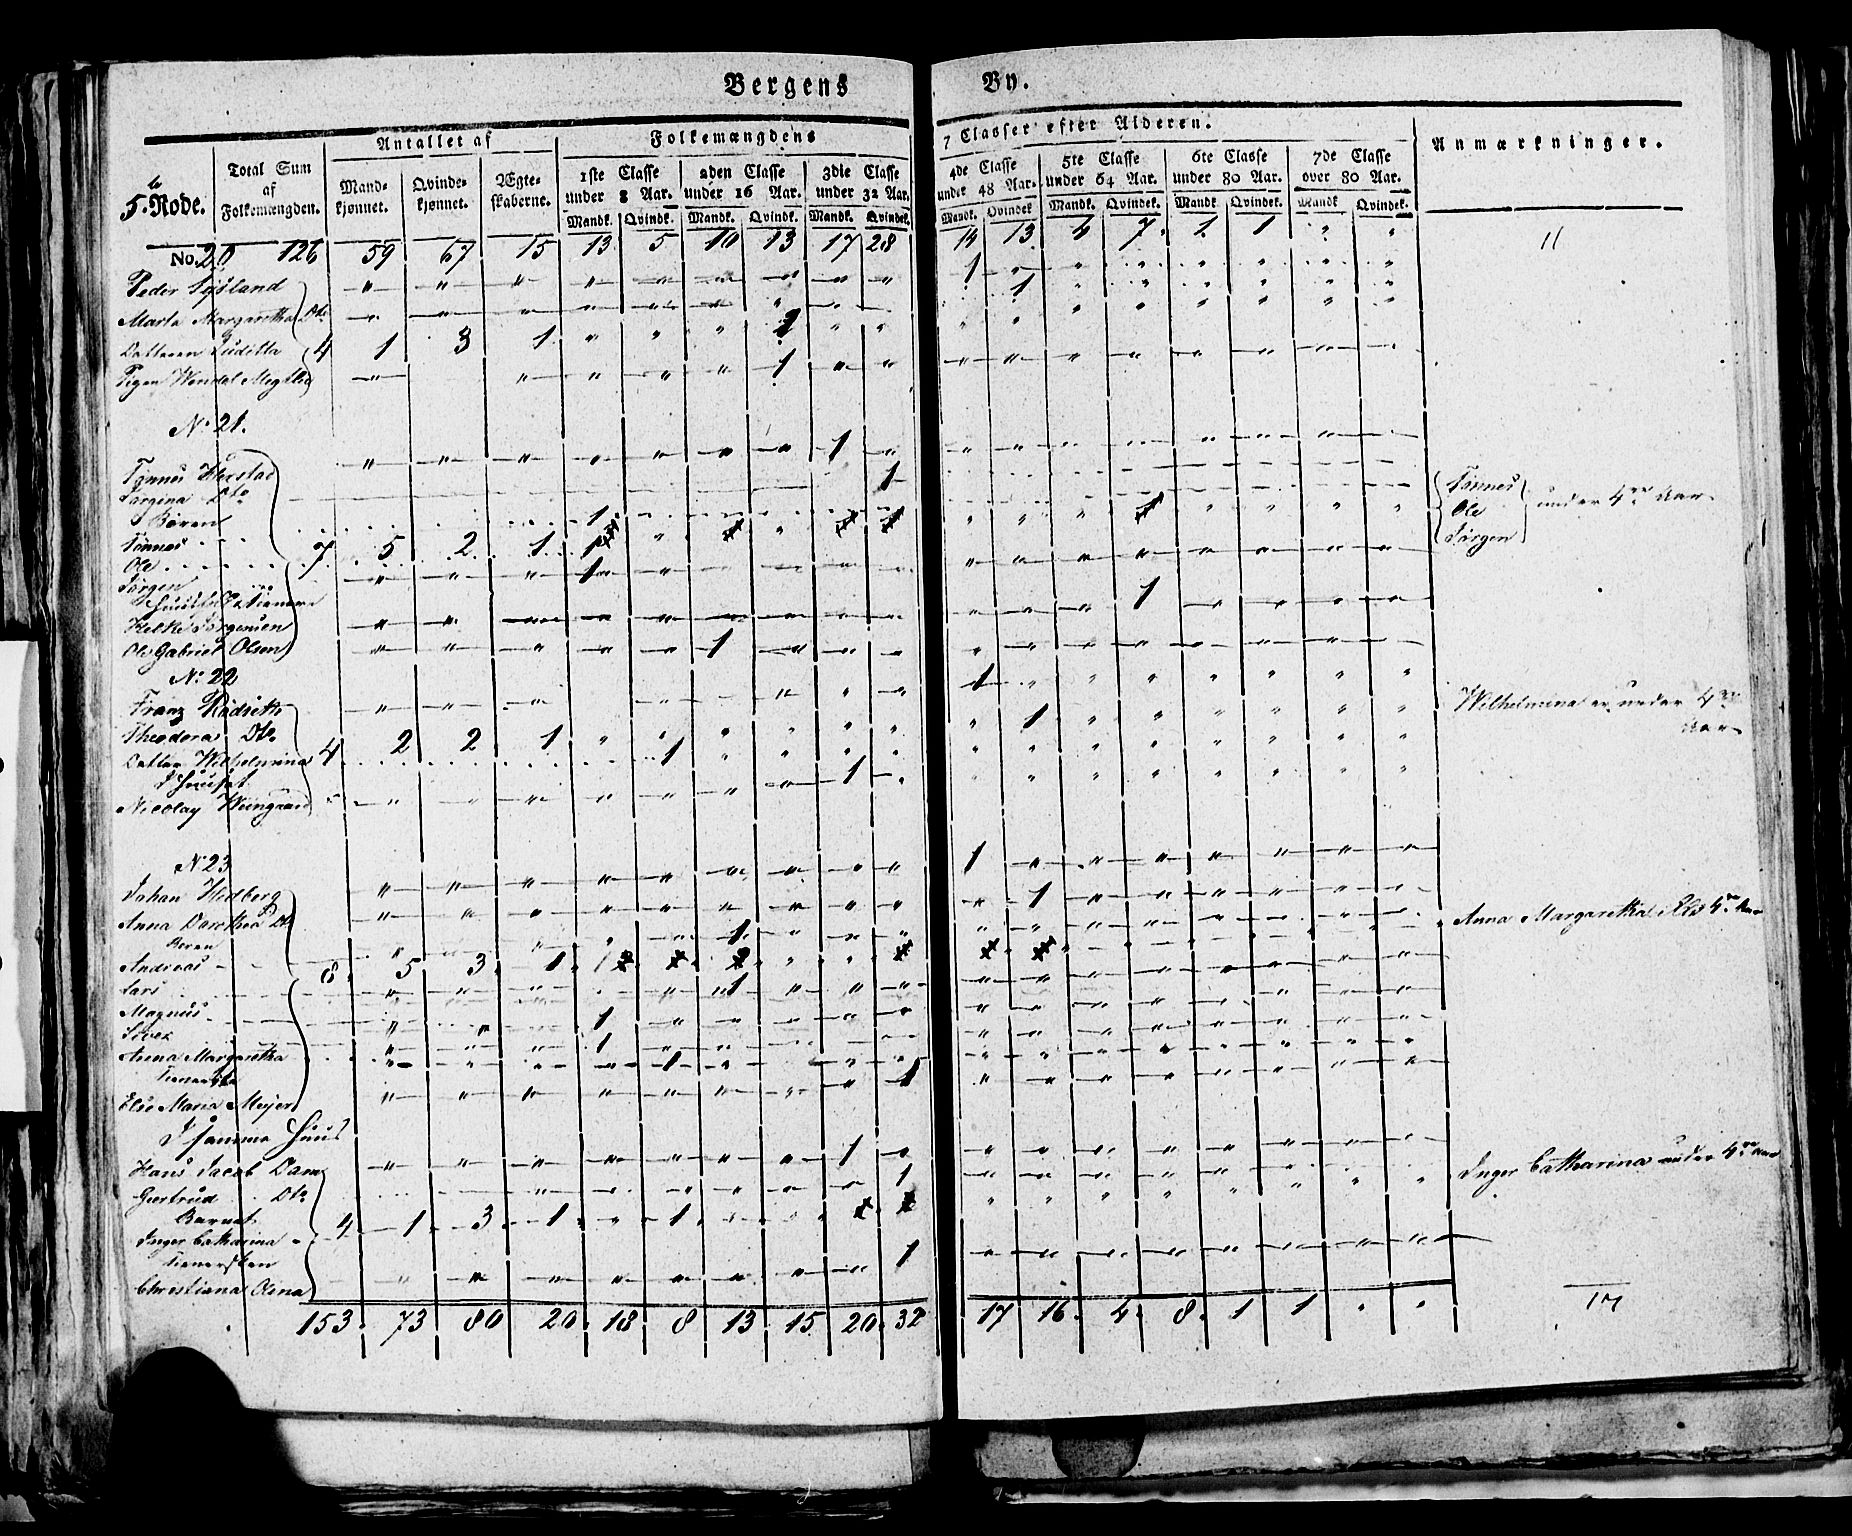 Bergens By.
Antallet af Folkemængdens 7 Classer efter Alderen. Anmærkninger.
5te Rode. Total Sum af Folkemængden. Mandkjønnet. Qvindekjønnet. Ægteskaberne. 1ste Classe under 8 Aar. 2den Classe under 16 Aar. 3die Classe under 32 Aar. 4de Classe under 48 Aar. 5te Classe under 64 Aar. 6te Classe under 80 Aar. 7de Classe over 80 Aar.
Mandk. Qvindk. Mandk. Qvindk. Mandk. Qvindek. Mandk. Qvindek Mandk. Qvindek. Mandk. Qvindek. Mandk Qvindek.
No. 20 126 59 67 15 13 5 10 13 17 28 14 13 4 7 1 1 " " 11
Peder 1
Marta Margaretha Dto 1
Datteren Juditta 4 1 3 1
Pigen 1
No 21.
Tønnes 1
Jørgina Dto 1
Børen
Tønnes 7 5 2 1 1
Ole 1
Jørgen 1
Helke Jørgensen 1
Ole Gabriel Olsen 1
Tønnes
Ole under 4re Aar
Jørgen
No 22
Franz 1
Theodora Dto 4 2 2 1 1
Datter Wilhelmina 1
I Huuset
Nicolay Wiingaard 1
Wilhelmina er under 4re
Aar
No 23
Johan Hedberg 1
Anna Dorthea Dto 1
Børen
Andreas 8 5 3 1 1
Lars 1
Magnus 1
Siver 1
Anna Margaretha 1
Tieneste
Else Maria Meyer 1
Anna Margaretha 4re Aar
I samme Huus
Hans Jacob Dam 1
Giertrud Dto 1
Barnet
Inger Catharina 4 1 3 1 1
Tienersken
Christiana Olena 1
Inger Catharina under 4re Aar
153 73 80 20 18 8 13 15 20 32 17 16 4 8 1 1 " " 17